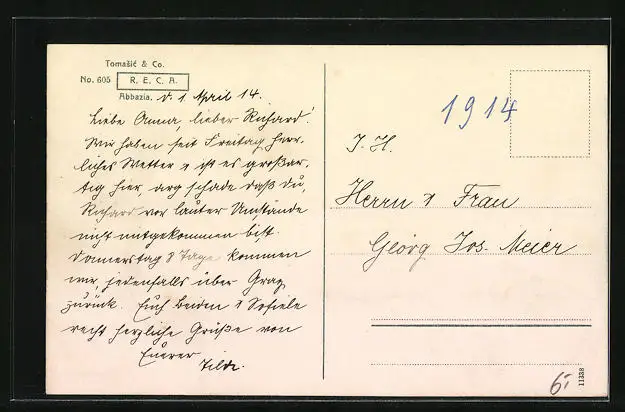 Tomašić & Co.
No. 605 R. E. C. A.
Abbazia, d. 1. April 14.
Liebe Anna, lieber Richard!
Wir haben seit Freitag herr-
liches Wetter & ist es großar-
tig hier, arg schade daß du,
Richard vor lauter Umstände
nicht mitgekommen bist.
Donnerstag 8 Tage kommen
wir, jedenfalls über Graz
zurück. Euch beiden & Sofiele
recht herzliche Grüße von
Euerer
Tilde.
1914
J. H.
Herrn & Frau
Georg Jos. Meier
6,-
11338